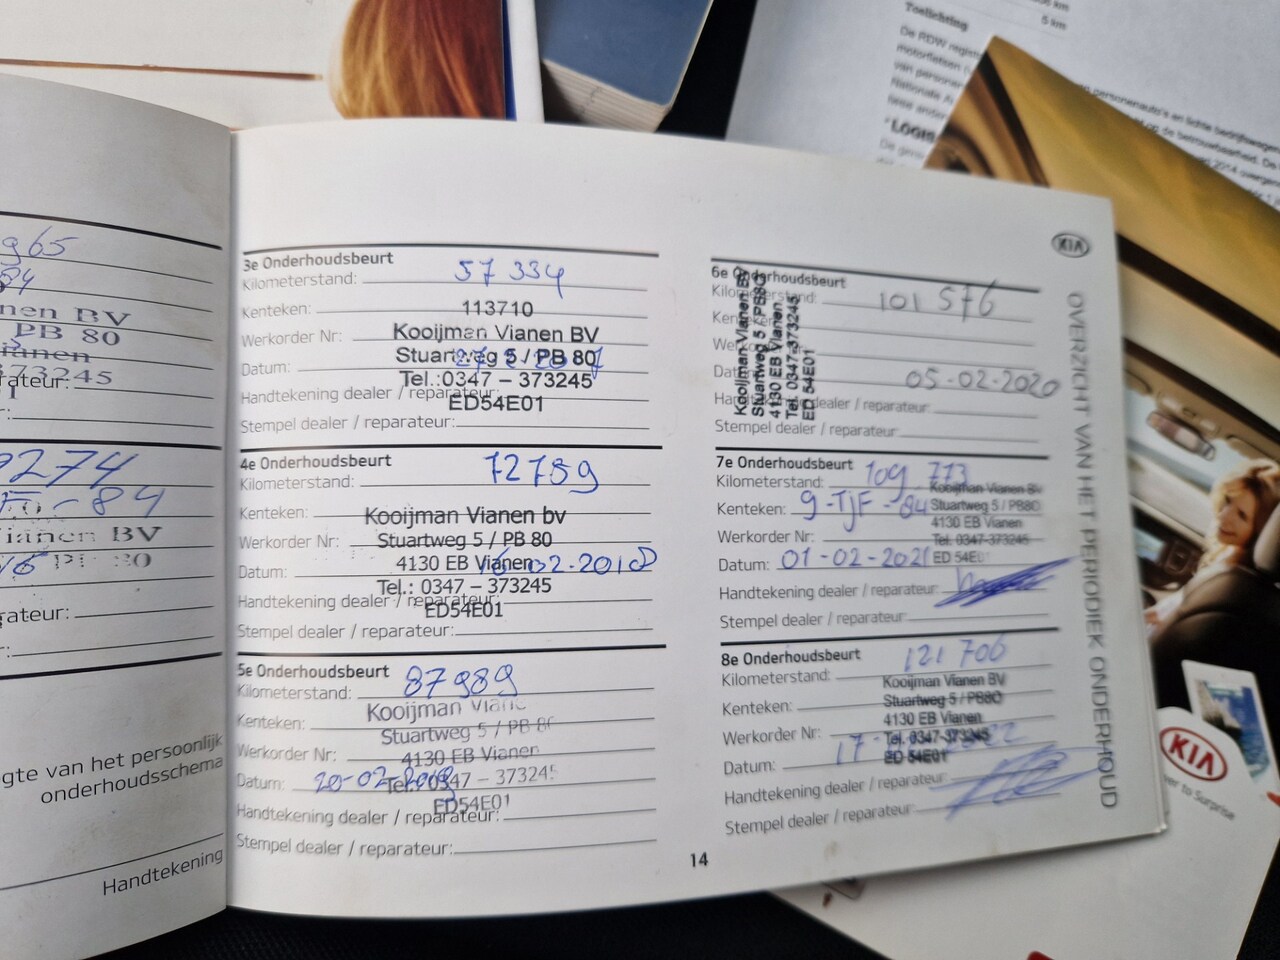 km
5 km
Toelichting
De RDW
LOGIS
personenauto's en lichte bedrijfswagens
g65
84
nen BV
PB 80
ianen
373245
rateur:
9274
- 84
ianen BV
ateur:
gte van het persoonlijk
onderhoudsschema
Handtekening
3e Onderhoudsbeurt
Kilometerstand: 57 334
Kenteken: 113710
Werkorder Nr: Kooijman Vianen BV
Stuartweg 5 / PB 80
Datum:
Tel.:0347 – 373245
Handtekening dealer / reparateur:
ED54E01
Stempel dealer / reparateur:
4e Onderhoudsbeurt
Kilometerstand: 72789
Kenteken: Kooijman Vianen bv
Werkorder Nr: Stuartweg 5 / PB 80
4130 EB Vianen
Datum: 16-02-2018
Tel.: 0347 – 373245
Handtekening dealer / reparateur:
ED54E01
Stempel dealer / reparateur:
5e Onderhoudsbeurt
Kilometerstand: 87989
Kooijman Vian
Kenteken: Stuartweg 5 / PB 80
Werkorder Nr: 4130 EB Vianen
Datum: 20-02-2019
Tel.: 0347 – 373245
ED54E01
Handtekening dealer / reparateur:
Stempel dealer / reparateur:
KIA
6e Onderhoudsbeurt
Kilometerstand: 101 576
Kenteken
Datum 05-02-2020
Handtekening dealer / reparateur:
Stempel dealer / reparateur:
Kooijman Vianen BV
Stuartweg 5 / PB80
4130 EB Vianen
Tel. 0347-373245
ED 54E01
7e Onderhoudsbeurt
Kilometerstand: 109 773
Kooijman Vianen BV
Kenteken: 9-TJF-84 Stuartweg 5 / PB80
4130 EB Vianen
Werkorder Nr: Tel. 0347-373245
Datum: 01-02-2021 ED 54E0
Handtekening dealer / reparateur:
Stempel dealer / reparateur:
8e Onderhoudsbeurt
Kilometerstand: 121 706
Kooijman Vianen BV
Kenteken: Stuartweg 5 / PB80
4130 EB Vianen
Werkorder Nr: Tel. 0347-373245
Datum: 17 ED 54E01
Handtekening dealer / reparateur:
Stempel dealer / reparateur:
14
OVERZICHT VAN HET PERIODIEK ONDERHOUD
KIA
er to Surprise